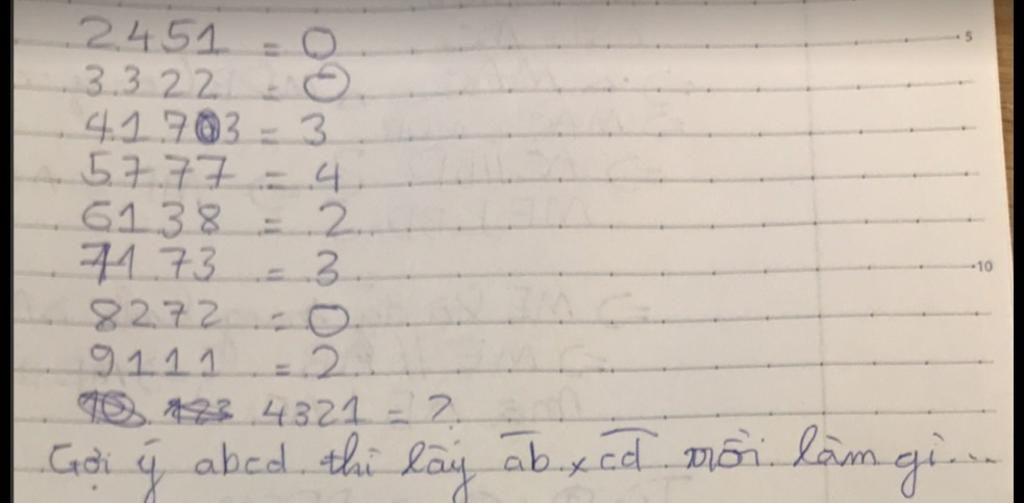 2451 = 0
3322 = 0
41703 = 3
5777 = 4
6138 = 2
7173 = 3
8272 = 0
9111 = 2
4321 = ?
Gợi ý abcd thì lấy ab x cd rồi làm gì...
5
10